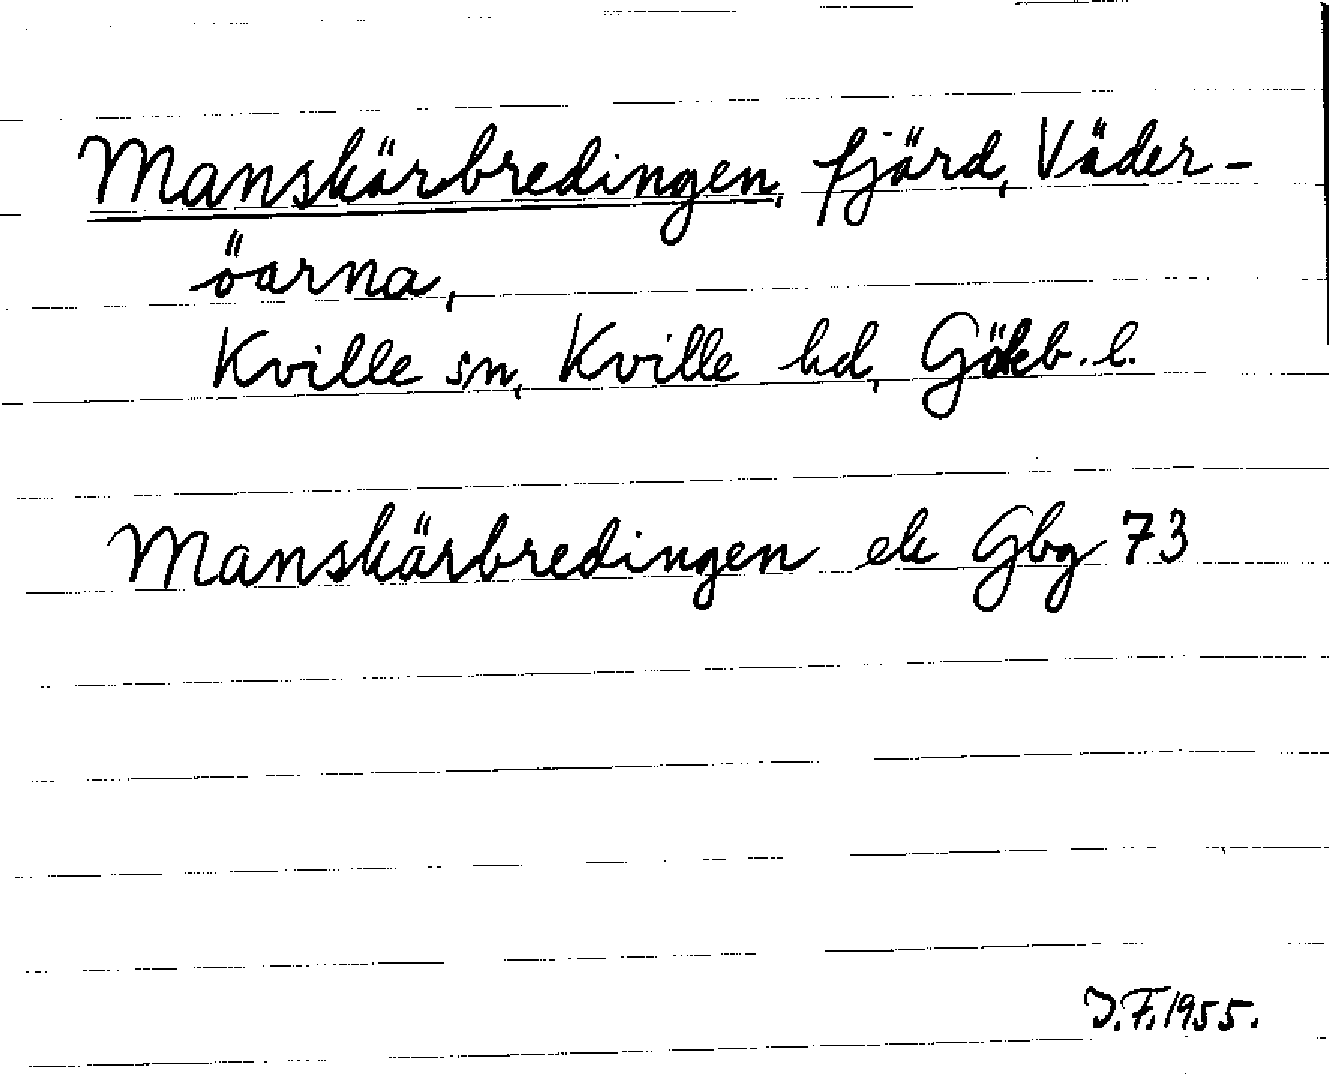 Manskärbredingen, fjärd, Väder-
öarna,
Kville sn, Kville hd, Göteb. l.
Manskärbredingen ek Gbg 73
J.F. 1955.